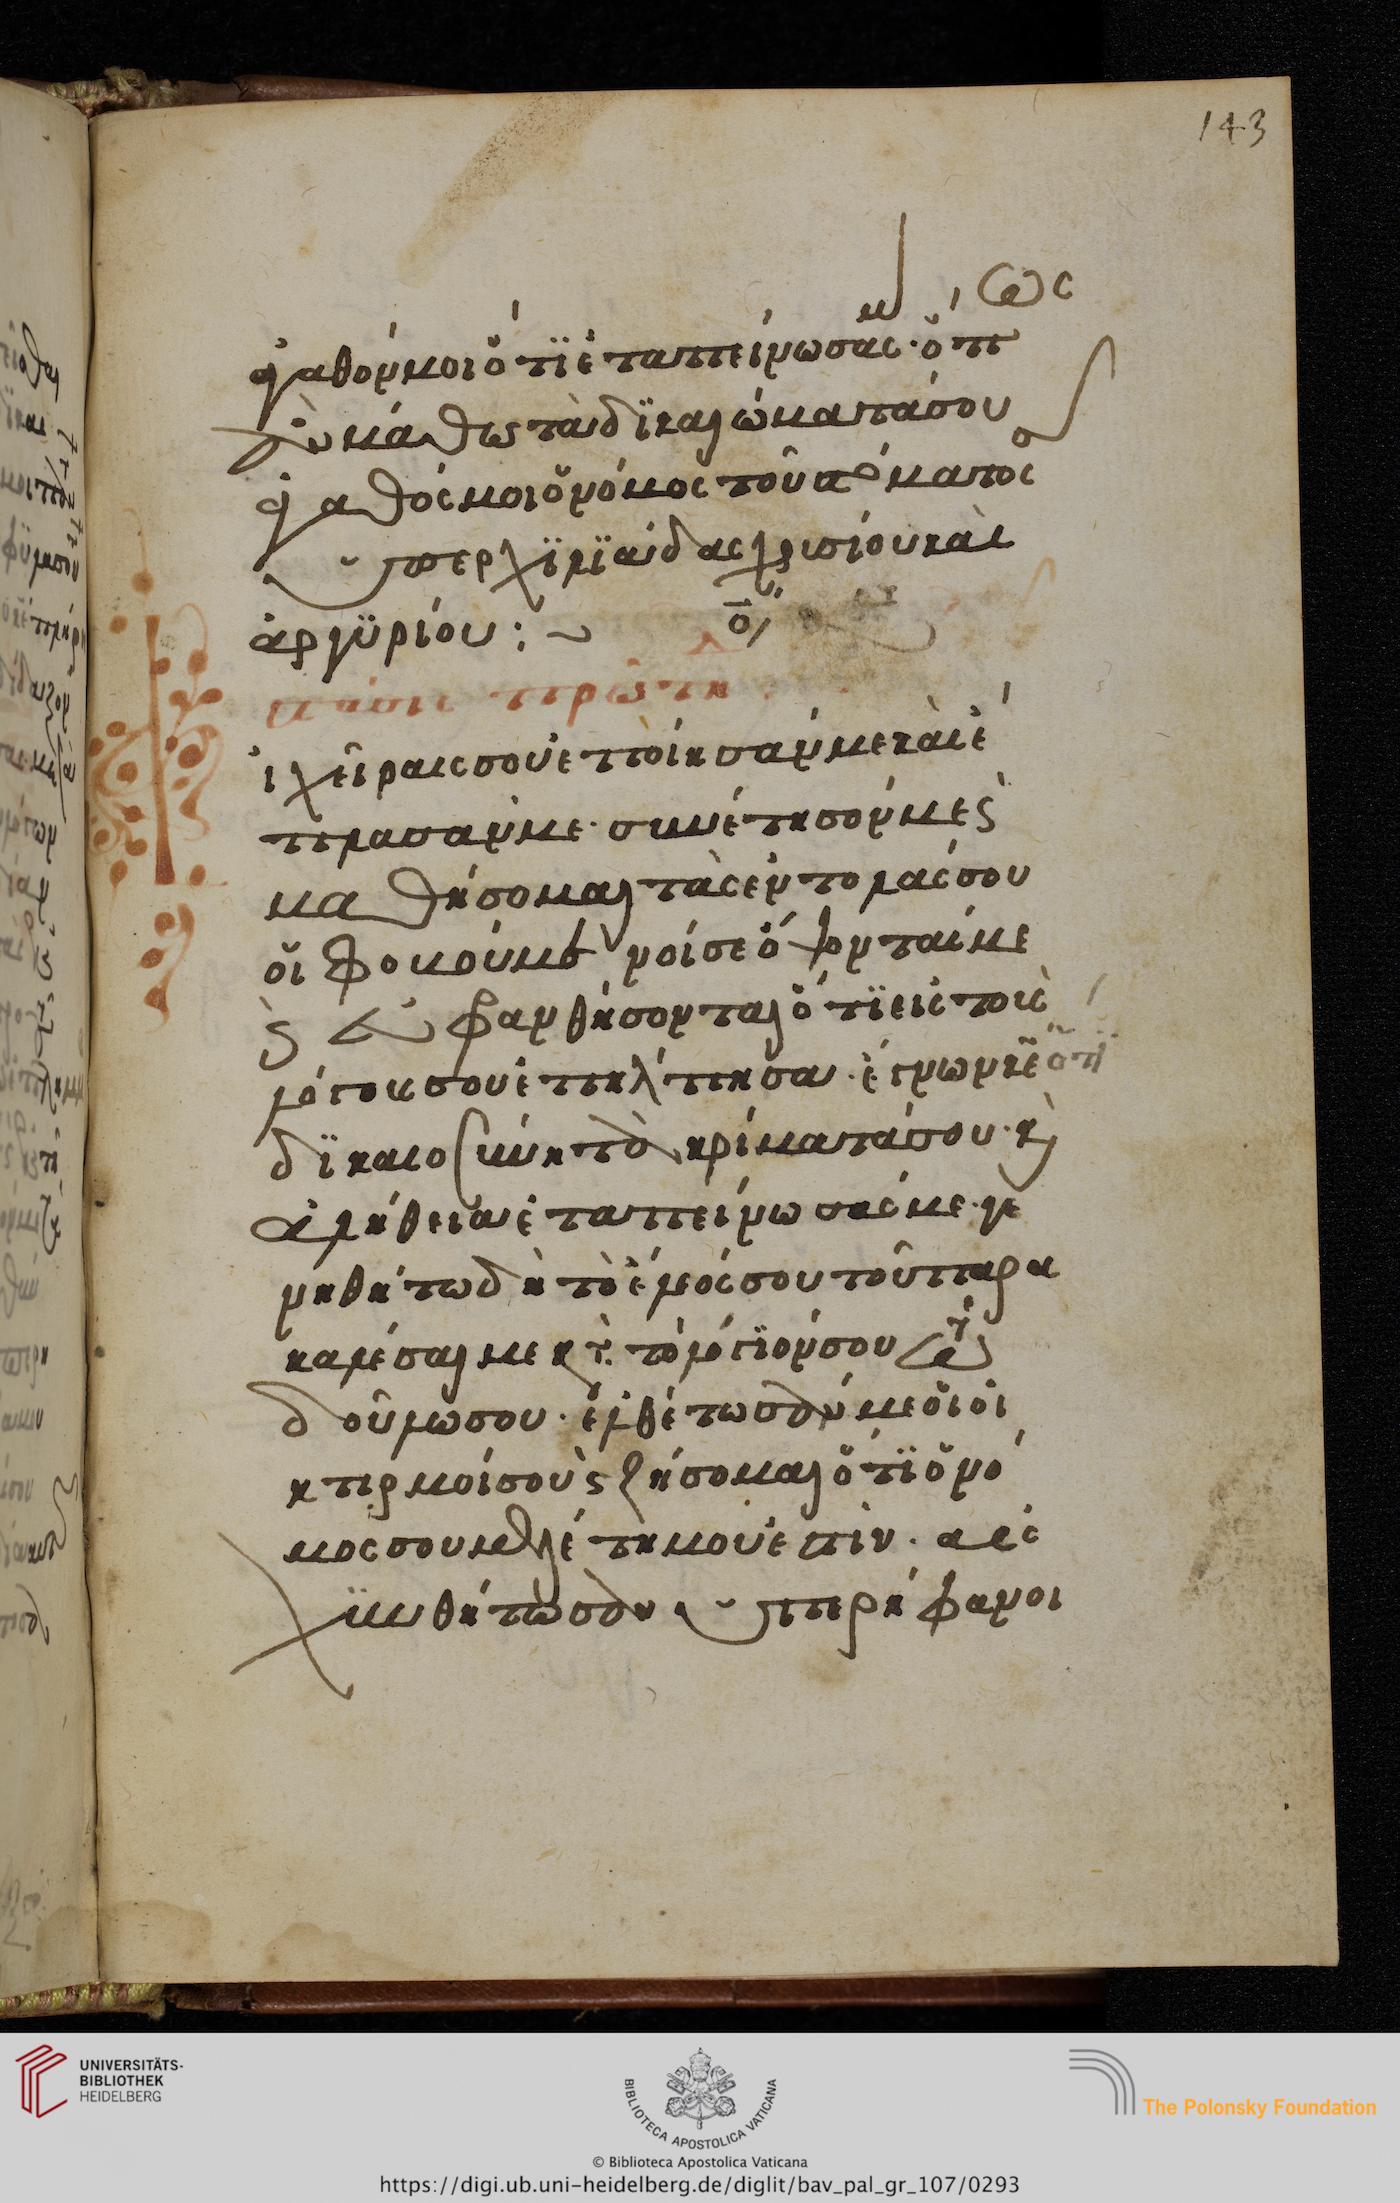 143
ἀγαθόν μοι ὅτι ἐταπείνωσάς με· ὅπως
ἂν μάθω τὰ δικαιώματά σου
ἀγαθός μοι ὁ νόμος τοῦ στόματός
ὑπὲρ χιλιάδας χρυσίου καὶ
ἀργυρίου :~
στάσις πρώτη
ι χεῖραις σου ἐποίησαν με καὶ ἔ
πλασαν με· συνέτησον με ς
μαθήσομαι τὰς ἐντολάς σου
οἱ φοβούμενοί σε ὄψονταί με
ς εὐφρανθήσονται ὅτι εἰς τοὺς
λόγους σου ἐπήλπησα· ἔγνων κε ὅτι
δικαιοσύνη τὰ κρίματά σου· κ
ἀλήθεια ἐταπείνωσάς με· γε
νηθήτω δὴ τὸ ἔλεός σου τοῦ παρα
καλέσαι με κτ τὸ λόγιόν σου τῶ
δούλω σου· ἐλθέτωσάν με οἱ οἰ
κτιρμοί σου ς ζήσομαι ὅτι ὁ νό
μος σου μελέτη μου ἐστίν· αἰς
χυνθήτωσαν ὑπερήφανοι
UNIVERSITÄTS-
BIBLIOTHEK
HEIDELBERG
BIBLIOTECA APOSTOLICA VATICANA
The Polonsky Foundation
© Biblioteca Apostolica Vaticana
https://digi.ub.uni-heidelberg.de/diglit/bav_pal_gr_107/0293